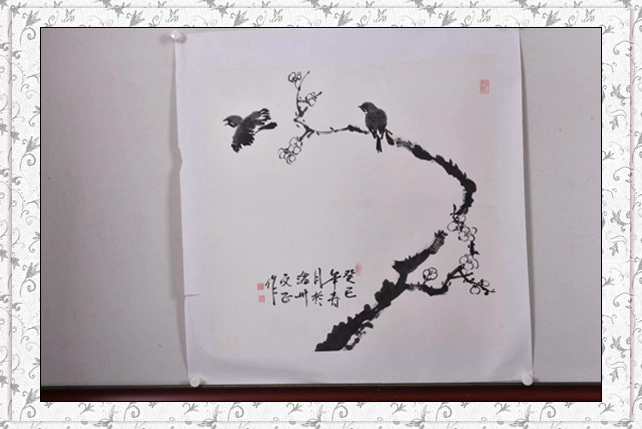 癸巳
年春
月於
滄州
文正
作